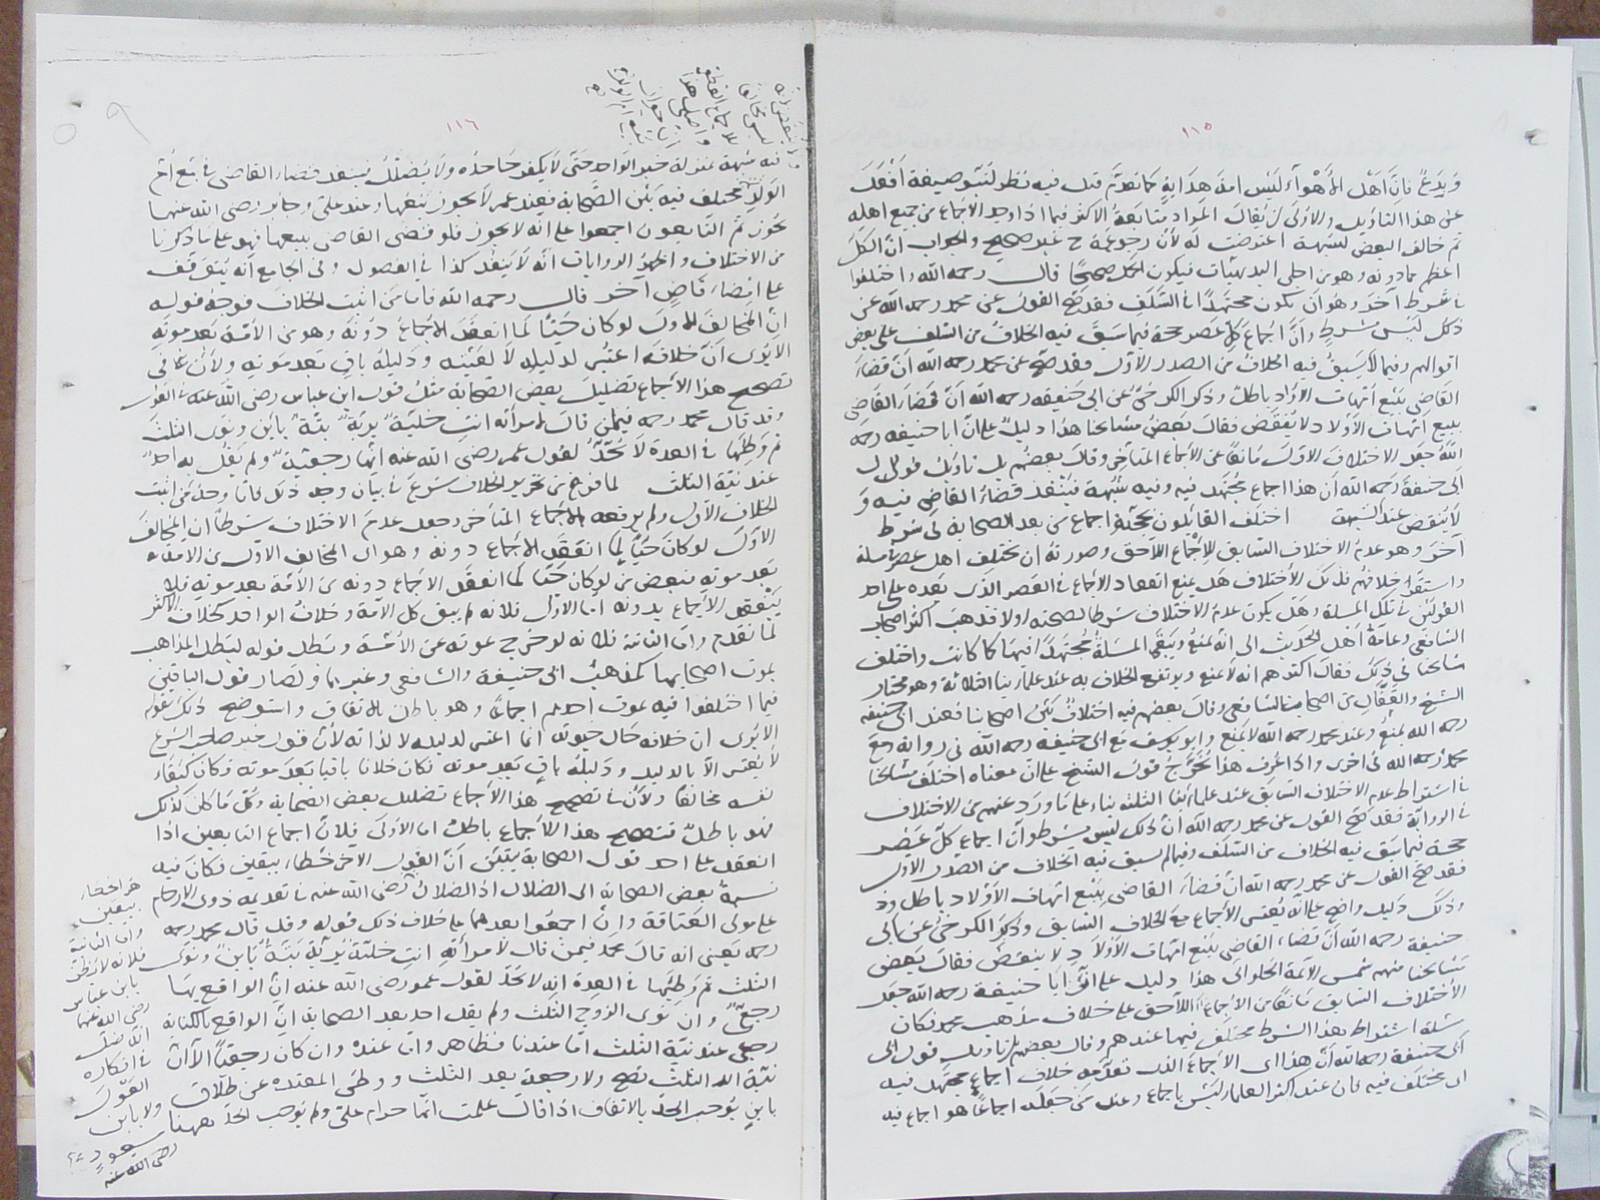 ١١٥
ويدع فان اهل الأهواء ليس امة هداية كما تقدم قيل فيه نظر لتسو صيغة أفعل
عن هذا التأويل والأولى ان يقال المراد متابعة الاكثر فيما اذا وجد الاجماع من جميع اهله
ثم خالف البعض لشبهة اعترضت له لأن رجوعه ح غير صحيح والجواب ان الكل
اعظم مما دونه وهو من اجلى البديهيات فيكون الحمل صحيحا قال رحمه الله واختلفوا
في شرط آخر وهو ان يكون مجتهدا في السلف فقد صح القول عن محمد رحمه الله عن
ذلك ليس بشرط وان اجماع كل عصر حجة فيما سبق فيه الخلاف من السلف على بعض
اقوالهم وفيما لم يسبق فيه الخلاف من الصدر الأول فقد صح عن محمد رحمه الله ان قضاء
القاضي ببيع امهات الأولاد باطل وذكر الكرخي عن ابي حنيفة رحمه الله ان قضاء القاضي
ببيع امهات الأولاد لا ينقض فقال بعض مشايخنا هذا دليل على ان ابا حنيفة رحمه
الله جعل الاختلاف الاول مانعا عن الاجماع المتأخر وقال بعضهم بل تأويل قول
ابي حنيفة رحمه الله ان هذا اجماع مجتهد فيه وفيه شبهة فينفذ قضاء القاضي فيه و
لا ينقض عند الشبهة اختلف القائلون بحجية اجماع من بعد الصحابة في شرط
آخر وهو عدم الاختلاف السابق للاجماع اللاحق وصورته ان يختلف اهل عصر في مسئلة
واستقر خلافهم فذلك الاختلاف هل يمنع انعقاد الاجماع في العصر الذي بعده على احد
القولين في تلك المسئلة وهل يكون عدم الاختلاف شرطا لصحته اولا فذهب اكثر اصحاب
الشافعي وعامة اهل الحديث الى انه يمنع ويبقى المسئلة مجتهدا فيها كما كانت واختلف
مشايخنا في ذلك فقال اكثرهم انه لا يمنع ويرتفع الخلاف به عند علمائنا الثلاثة وهو مختار
الشيخ والقفال من اصحاب الشافعي وقال بعضهم فيه اختلاف بين اصحابنا فعند ابي حنيفة
رحمه الله يمنع وعند محمد رحمه الله لا يمنع وابو يوسف مع ابي حنيفة رحمه الله في رواية ومع
محمد رحمه الله في اخرى واذا عرف هذا يخرج قول الشيخ على ان معناه اختلف مشايخنا
في اشتراط عدم الاختلاف السابق عند علمائنا الثلثة بناء على ما ورد عنهم من الاختلاف
في الرواية فقد صح القول عن محمد رحمه الله ان ذلك ليس بشرط وان اجماع كل عصر
حجة فيما سبق فيه الخلاف من السلف وفيما لم يسبق فيه الخلاف من الصدر الاول
فقد صح القول عن محمد رحمه الله ان قضاء القاضي ببيع امهات الأولاد باطل
وذلك دليل واضح على انه يعتبر الاجماع مع الخلاف السابق وذكر الكرخي عن ابي
حنيفة رحمه الله ان قضاء القاضي ببيع امهات الأولاد لا ينقض فقال بعض
مشايخنا منهم شمس الأئمة الحلواني هذا دليل على ان ابا حنيفة رحمه الله جعل
الاختلاف السابق مانعا من الاجماع اللاحق على خلاف مذهب محمد فكان
مسئلة اشتراط هذا الشرط مختلف فيها عندهم وقال بعضهم بل تأويل قول ابي
ابي حنيفة رحمه الله ان هذا اي الاجماع الذي تقدمه خلاف اجماع مجتهد فيه
اي مختلف فيه فان عند اكثر العلماء ليس باجماع وعند من جعله اجماعا هو اجماع فيه
١١٦
فيه شبهة بمنزلة خبر الواحد حتى لا يكفر جاحده ولا يضلل فينفذ قضاء القاضي في بيع أم
الولد مختلف فيه بين الصحابة فعند عمر لا يجوز بيعها وعند علي وجابر رضي الله عنهما
يجوز ثم التابعون اجمعوا على انه لا يجوز فلو قضى القاضي ببيعها فهو على ما ذكرنا
من الاختلاف واظهر الروايات انه لا ينفذ كذا في الفصول وفي الجامع انه يتوقف
على امضاء قاض آخر قال رحمه الله فاما من اثبت الخلاف فوجه قوله
ان المخالف الاول لو كان حيا لما انعقد الاجماع دونه وهو من الأمة بعد موته
الا يرى ان خلافه اعتبر لدليله لا لعينه ودليله باق بعد موته ولأن في
تصحيح هذا الاجماع تضليل بعض الصحابة مثل قول ابن عباس رضي الله عنه في العول
وقد قال محمد رحمه فيمن قال لامرأته انت خلية برية بتة باين ونوى الثلث
ثم وطئها في العدة لا يحد لقول عمر رضي الله عنه انها رجعية ولم يقل به احد
عند نية الثلث لما فرغ من تحرير الخلاف شرع في بيان وجه ذلك فاما وجه من اثبت
الخلاف الاول ولم يرفعه بالاجماع المتأخر وجعل عدم الاختلاف شرطا ان المخالف
الاول لو كان حيا لما انعقد الاجماع دونه وهو اي المخالف الاول من الامة
بعد موته فبعض من لو كان حيا لما انعقد الاجماع دونه من الأمة بعد موته فلا
ينعقد الاجماع بدونه اما الاول فلانه لم يبق كل الامة وخلاف الواحد كخلاف الاكثر
لما تقدم واما الثانية فلانه لو خرج بموته عن الأمة وبطل قوله لبطل المذاهب
بموت اصحابها كمذهب ابي حنيفة والشافعي وغيرهما ولصار قول الباقين
فيما اختلفوا فيه بموت احدهم اجماعا وهو باطل بالاتفاق واستوضح ذلك بقوله
الا يرى ان خلافه حال حيوته انما اعتبر لدليله لا لذاته لأن قول غير صاحب الشرع
لا يعتبر الا بالدليل ودليله باق بعد موته فكان خلافا باقيا بعد موته فكان كبقاء
نفسه مخالفا ولأن في تصحيح هذا الاجماع تضليل بعض الصحابة وكل ما كان كذلك
فهو باطل فتصحيح هذا الاجماع باطل اما الاولى فلان اجماع التابعين اذا
انعقد على احد قولي الصحابة يتبين ان القول الاخر خطاء بيقين فكان فيه
نسبة بعض الصحابة الى الضلال رضي الله عنه في تقديمه ذوي الارحام
على مولى العتاقة وان اجمعوا بعدهما على خلاف ذلك قوله وقد قال محمد رحمه
رحمه يعني انه قال محمد فيمن قال لامرأته انت خلية برية بتة باين ونوى
الثلث ثم وطئها في العدة انه لا يحد لقول عمر رضي الله عنه ان الواقع بها
رجعي وان نوى الزوج الثلث ولم يقل احد بعد الصحابة ان الواقع بالكناية
رجعي عند نية الثلث اما عندنا فظاهر واما عنده وان كان رجعيا الا ان
نية الثلث تصح ولا رجعة بعد الثلث ووطئ المعتدة عن طلاق
باين يوجب الحد بالاتفاق اذا قال علمت انها حرام علي ولم يوجب الحد ههنا
هو الخطاء
بيقين
واما الثانية
فلانه لا يظن
بابن عباس
رضي الله عنهما
انه ضل
في انكاره
العول
ولا بابن
مسعود
رضي الله عنه